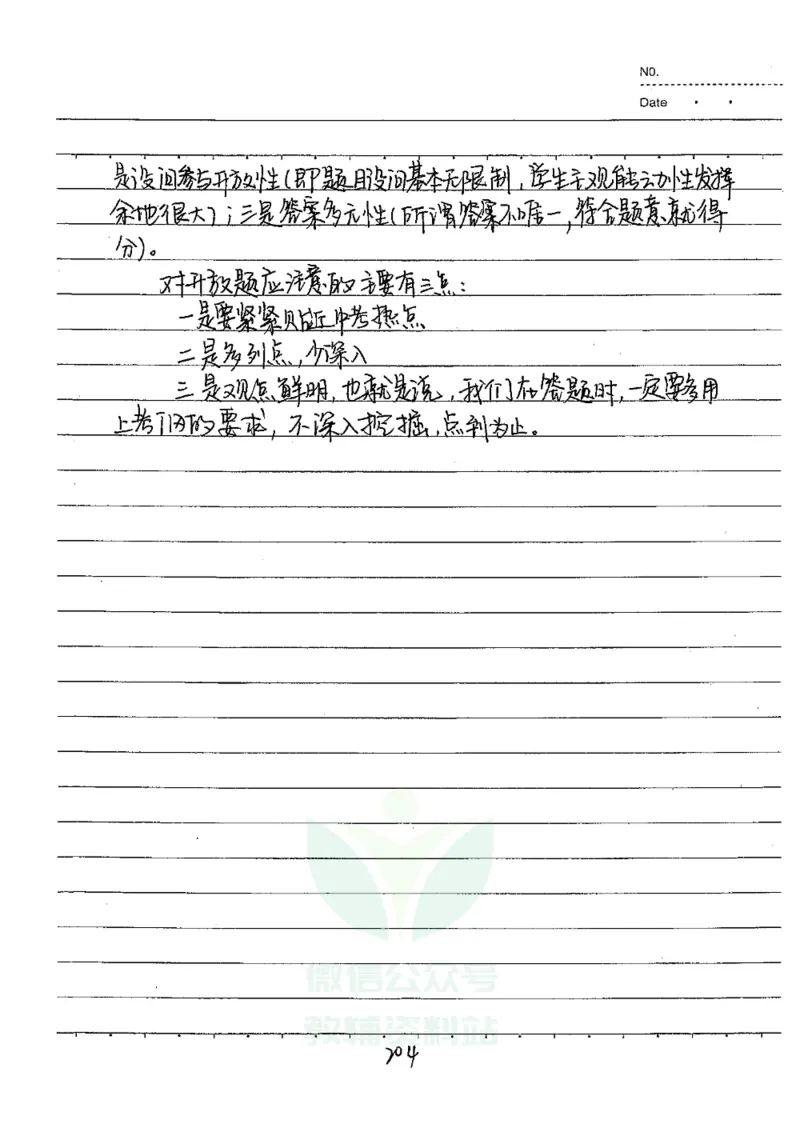 NO.
Date
是设问参与开放性(即题目设问基本无限制,学生主观能动性发挥
余地很大);三是答案多元性(所谓答案不唯一,符合题意就得
分)。
对开放题应注意的主要有三点:
一是要紧紧贴近中考热点
二是多列点,少深入
三是观点鲜明,也就是说,我们在答题时,一定要多用
上考门的要求,不深入挖掘,点到为止。
微信公众号
教辅资料站
204